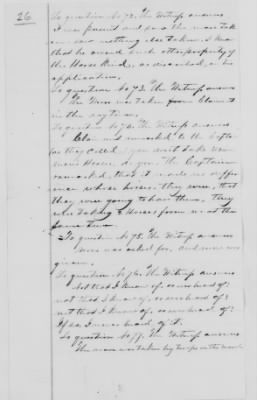 26
To question No 72. The Witness answers
I was present and saw the mare taken
saw nothing else taken, I know
that he owned such other property of
the Horse kind, as described, in his
application.
To question No 73. The Witness answers
The Mare was taken from claimant
in the daytime.
To question No 74. The Witness answers
Claimant remarked to the Captain
as they called you won't take Van
horse, do you. The Captain
remarked, that it made no differ
ence whose horses they were, that
they were going to have them. They
were taking Horses from us at the
same time.
To question No 75. The Witness answers
None was asked for, and none was
given.
To question No 76. The Witness answers
Not that I know of, or ever heard of;
not that I know of, or ever heard of;
not that I know of, or ever heard of;
If so, I never heard of it.
To question No 77. The Witness answers
The mare was taken by troops in the